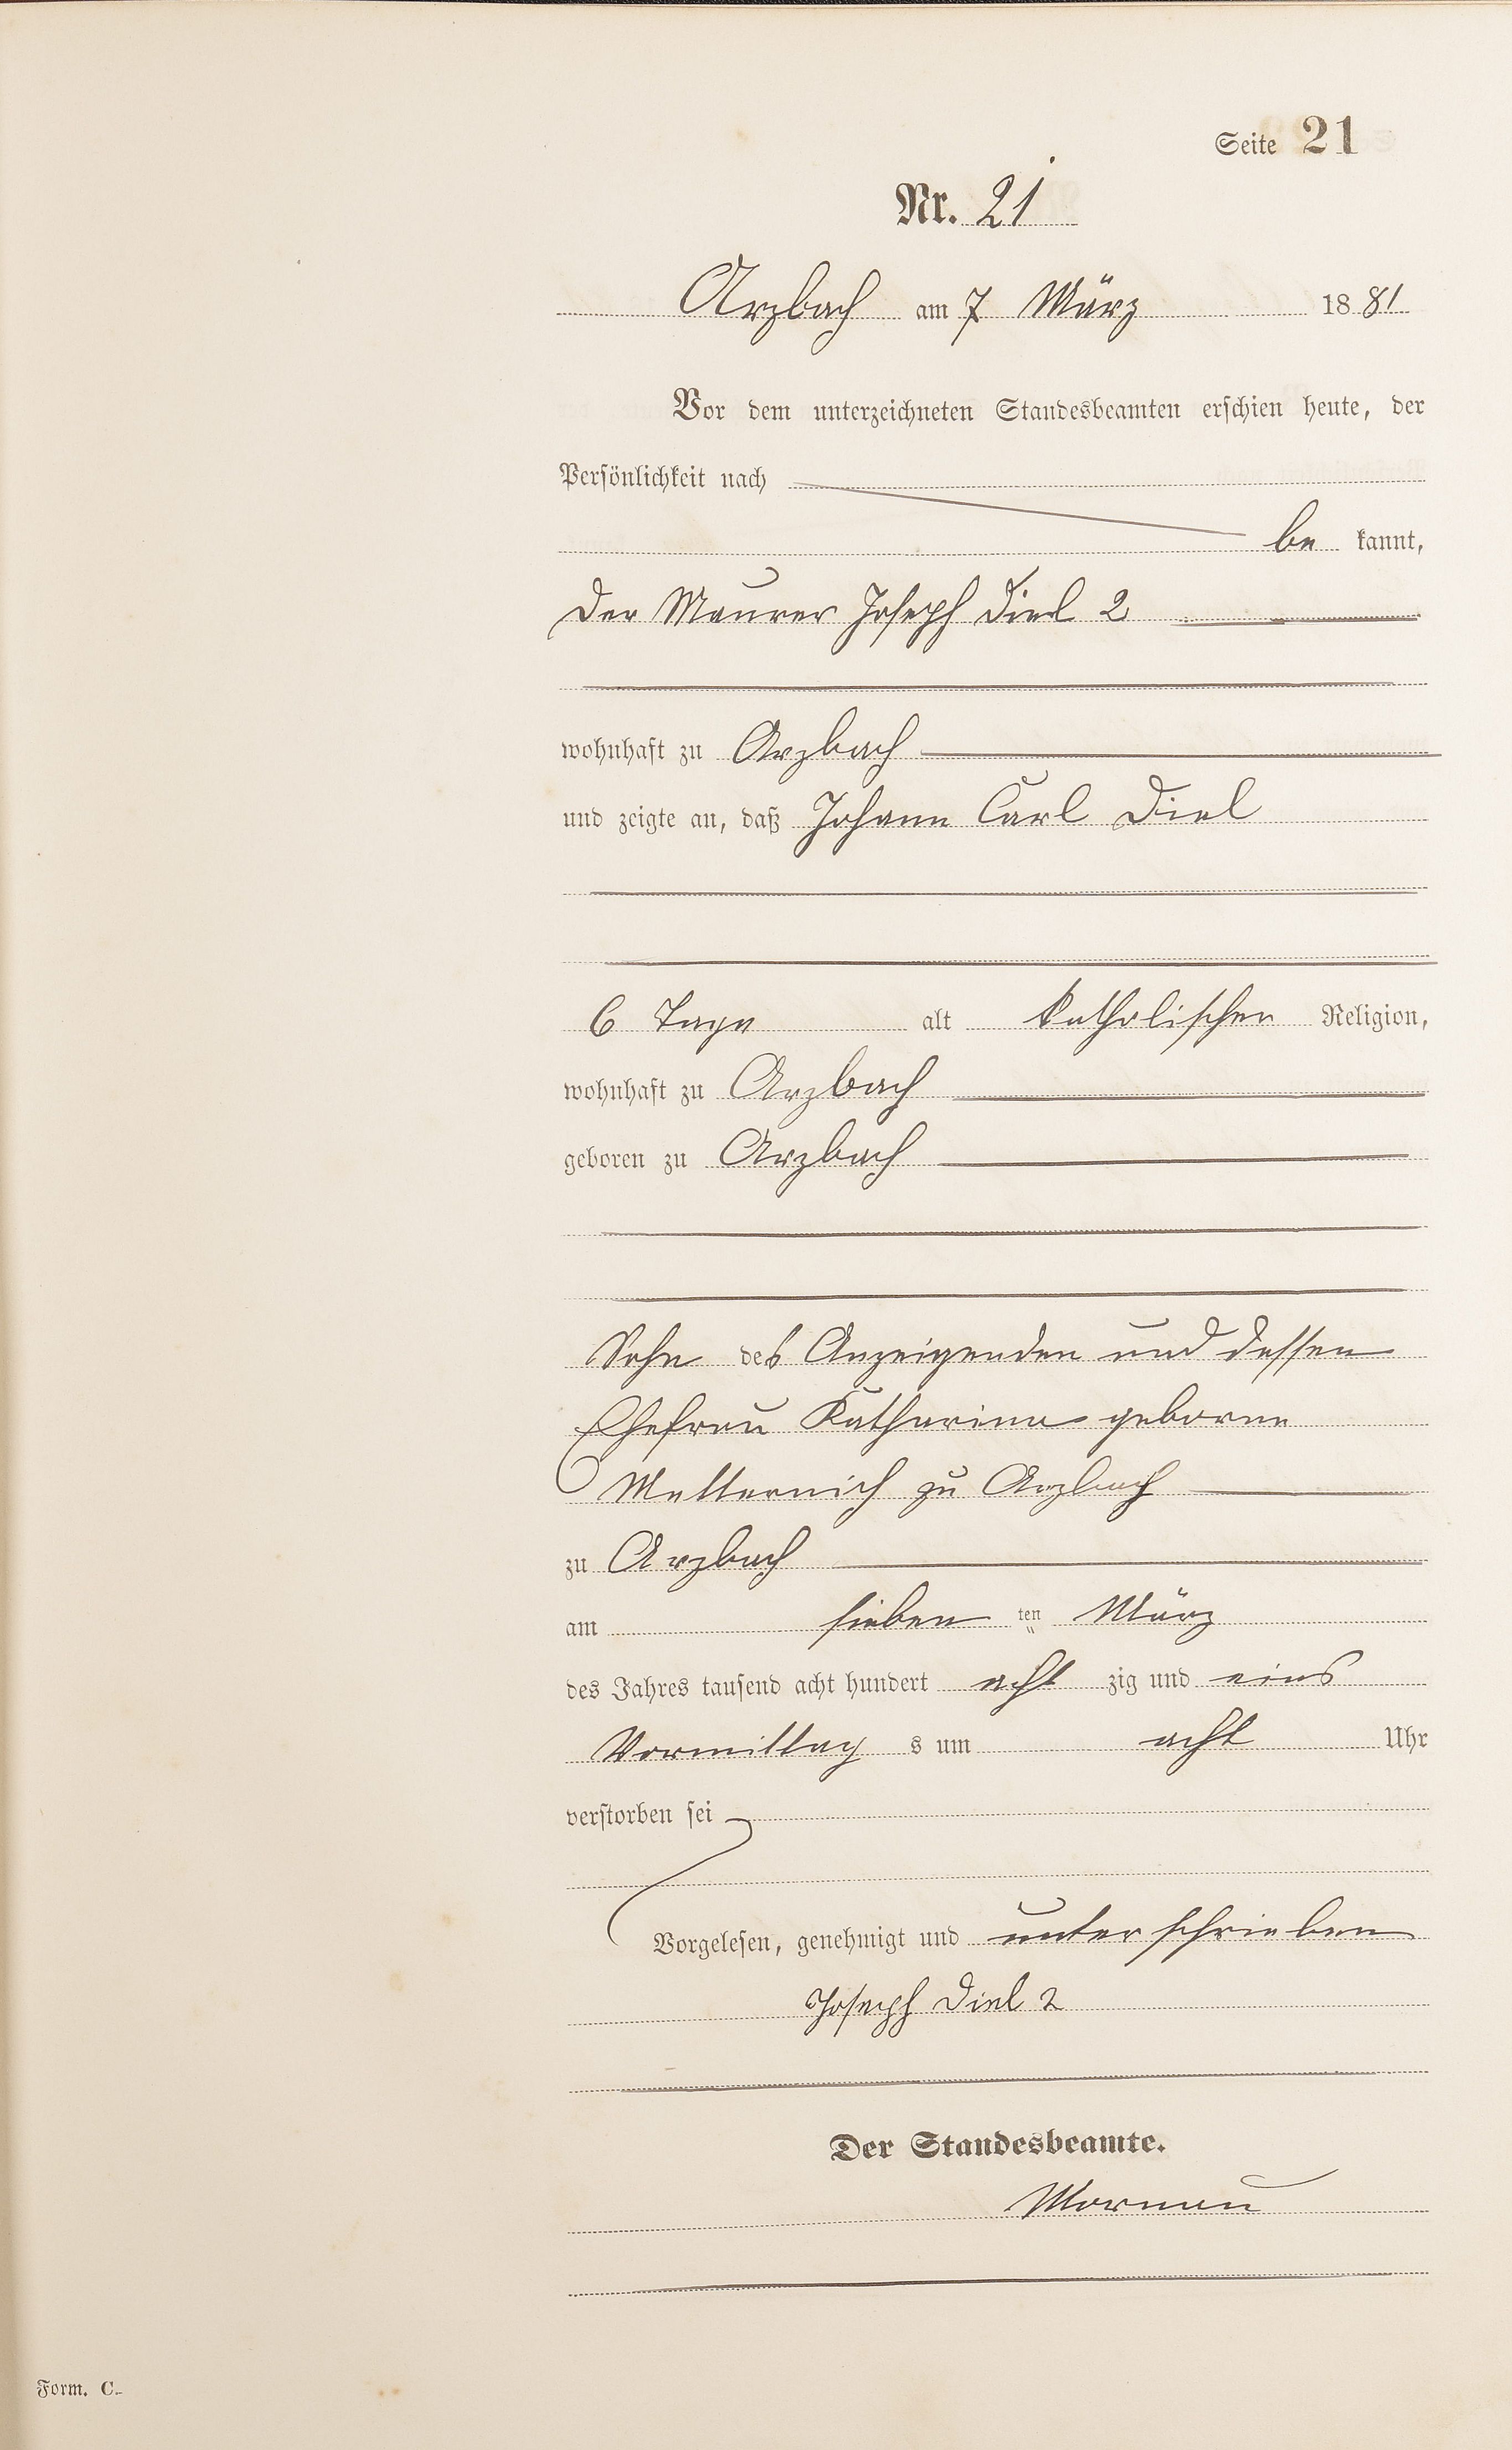 Seite 21
Nr. 21
Arzbach am 7 März 1881
Vor dem unterzeichneten Standesbeamten erschien heute, der
Persönlichkeit nach
be kannt,
der Maurer Joseph Diel 2
wohnhaft zu Arzbach
und zeigte an, daß Johann Carl Diel
6 Tage alt katholischer Religion,
wohnhaft zu Arzbach
geboren zu Arzbach
Sohn des Anzeigenden und dessen
Ehefrau Katharina geborne
Metternich zu Arzbach
zu Arzbach
am sieben ten März
des Jahres tausend acht hundert acht zig und eins
Vormittag s um acht Uhr
verstorben sei
Vorgelesen, genehmigt und unterschrieben
Joseph Diel 2
Der Standesbeamte.
Form. C.